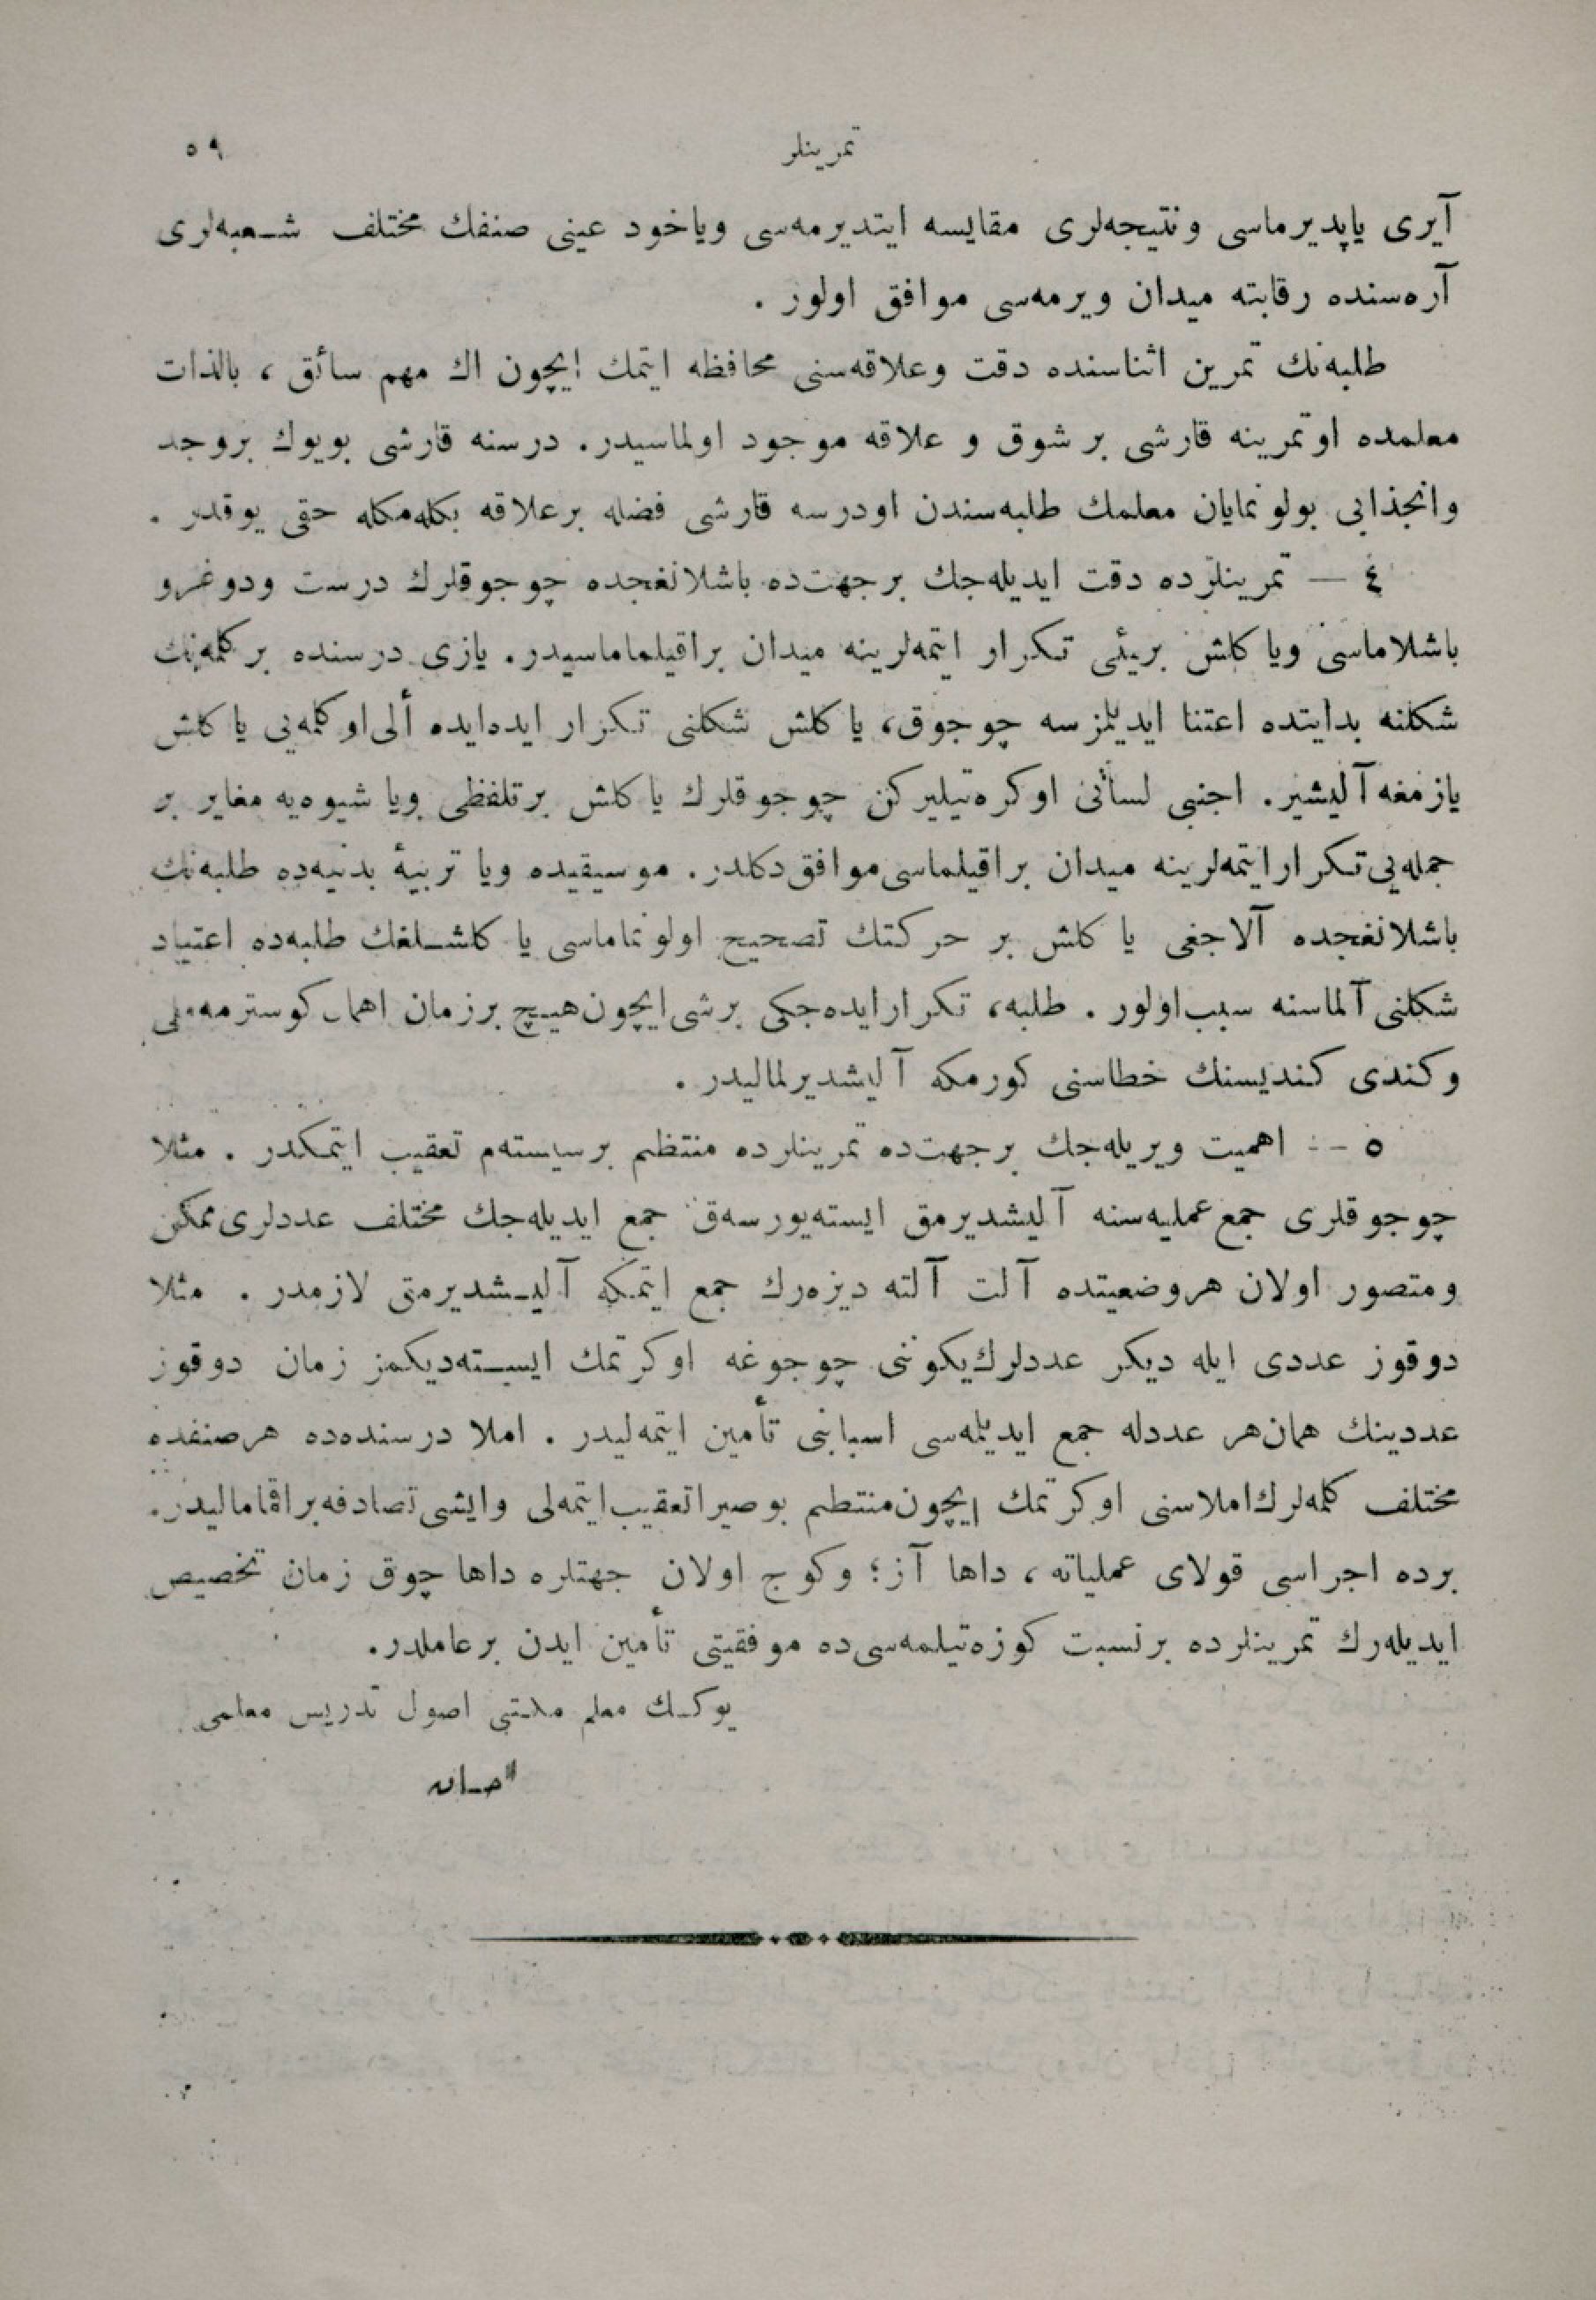 تمرینلر ٥٩
آیری یاپدیرماسی ونتیجه‌لری مقایسه ایتدیرمه‌سی ویاخود عینی صنفك مختلف شـعبه‌لری
آره‌سنده رقابته میدان ویرمه‌سی موافق اولور .
طلبه‌نك تمرین اثناسنده دقت وعلاقه‌سنی محافظه ایتمك ایچون اك مهم سائق ، بالذات
معلمده اوتمرینه قارشی بر شوق و علاقه موجود اولماسیدر. درسنه قارشی بویوك بروجد
وانجذابی بولونمایان معلمك طلبه‌سندن اودرسه قارشی فضله برعلاقه بكله‌مكله حقی یوقدر .
٤ — تمرینلرده دقت ایدیله‌جك برجهت‌ده باشلانغجده چوجوقلرك درست ودوغرو
باشلاماسی ویا كلش بریئی تكرار ایتمه‌لرینه میدان براقیلماماسیدر. یازی درسنده بر كلمه‌نك
شكلنه بدایتده اعتنا ایدیلمزسه چوجوق، یا كلش شكلنی تكرار ایده‌ایده ألی‌او كلمه‌یی یا كلش
یازمغه آلیشیر. اجنبی لسأنی اوكره‌تیلیركن چوجوقلرك یا كلش برتلفظی ویا شیوه‌یه مغایر بر
جمله‌یی تكرار ایتمه‌لرینه میدان براقیلماسی موافق دكلدر. موسیقیده ویا تربیهٔ بدنیه‌ده طلبه‌نك
باشلانغجده آلاجغی یا كلش بر حركتك تصحیح اولونماماسی یا كلشـلغك طلبه‌ده اعتیاد
شكلنی آلماسنه سبب‌اولور . طلبه، تكرارایده‌جكی برشی ایچون هیـچ برزمان اهمال كوسترمه‌ملی
وكندی كندیسنك خطاسنی كورمكه آلیشدیرلمالیدر .
٥ — اهمیت ویریله‌جك برجهت‌ده تمرینلرده منتظم برسیسته‌م تعقیب ایتمكدر . مثلا
چوجوقلری جمع عملیه‌سنه آلیشدیرمق ایسته‌یورسه‌ق جمع ایدیله‌جك مختلف عددلری ممكن
ومتصور اولان هروضعیتده آلت آلته دیزه‌رك جمع ایتمكه آلیـشدیرمق لازمدر . مثلا
دوقوز عددی ایله دیكر عددلرك‌یكوننی چوجوغه اوكرتمك ایسـته‌دیكمز زمان دوقوز
عددینك همان‌هر عددله جمع ایدیلمه‌سی اسبابنی تأمین ایتمه‌لیدر . املا درسنده‌ده هرصنفده
مختلف كلمه‌لرك‌املاسنی اوكرتمك ایچون‌منتظم بوصیراتعقیب‌ایتمه‌لی وایشی تصادفه‌براقامالیدر.
برده اجراسی قولای عملیاته ، داها آز؛ وكوج اولان جهتلره داها چوق زمان تخصیص
ایدیله‌رك تمرینلرده برنسبت كوزه‌تیلمه‌سی‌ده موفقیتی تأمین ایدن برعاملدر.
یوكـك معلم مكتبی اصول تدریس معلمی